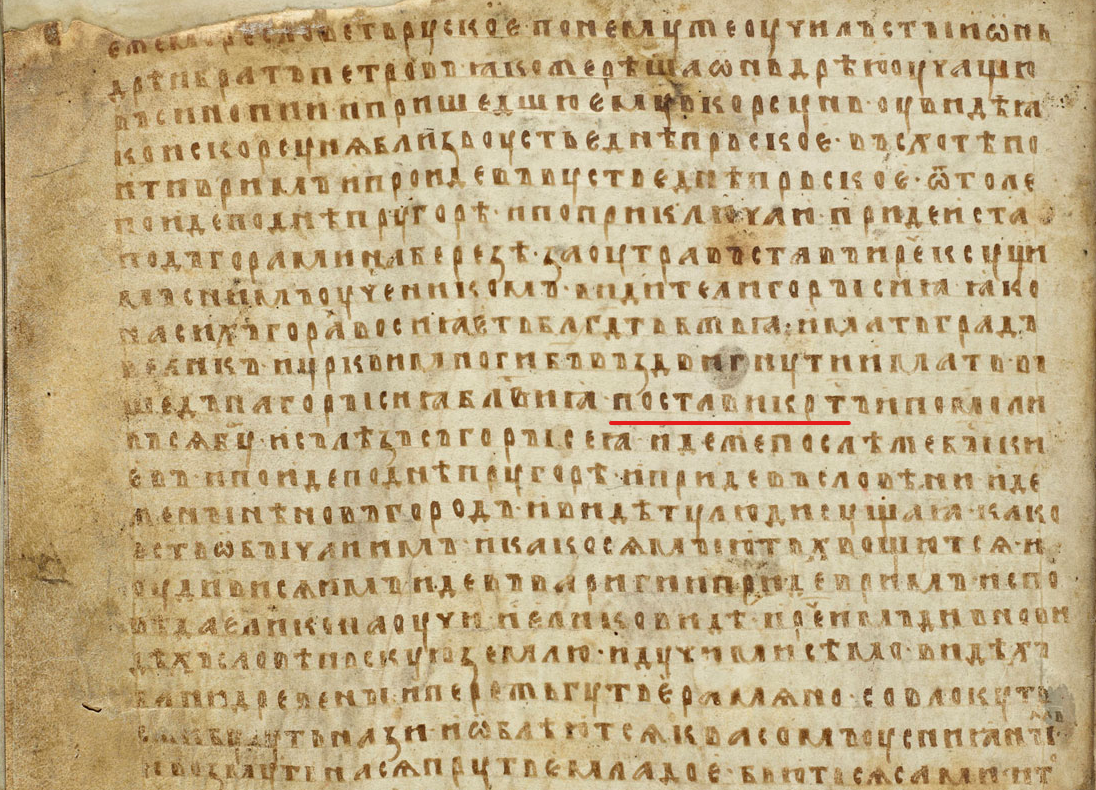 еже море словеть руское по немуже оучилъ стꙑи ѡнъ
дрѣи братъ петровъ ꙗкоже рѣша ѡнъдрѣю оучащю
въ синопии и пришедшю ему в корсунь оувидѣ ꙗ
ко ис корсунѧ близь оустье днѣпрьское въсхотѣ по
ити в римъ и проиде въ вустье днѣпрьское ѿтоле
поиде по днѣпру горѣ и по приключаи приде и ста
подъ горами на березѣ заоутра въставъ и реч к сущи
мъ с нимъ оученикомъ видите ли горꙑ сиꙗ ꙗко
на сихъ горах восиꙗеть блгдть бжьꙗ имать градъ
великъ и цркви многи бъ въздвигнути имать въ
шедъ на горꙑ сиꙗ блви ꙗ постави кртъ и помоли
въсѧ бу и сълѣзъ съ горꙑ сеꙗ идеже послѣже бꙑ ки
евъ и поиде по днѣпру горѣ и приде въ словѣни иде
же нꙑнѣ новъгородъ и видѣ ту люди сущаꙗ како
есть ѡбꙑчаи имъ и како сѧ мꙑють хвощютсѧ и
оудивисѧ имъ иде въ варѧги и приде в римъ испо
вѣда елико наоучи и елико видѣ и реч имъ дивно ви
дѣхъ словѣньскую землю идучи ми сѣмо видѣхъ
бани древенꙑ и пережьгуть е рамѧно совлокуть
сѧ и будуть нази и ѡблѣютсѧ квасомъ оусниꙗнꙑ
и возмуть на сѧ прутье младое бьютьсѧ сами и т